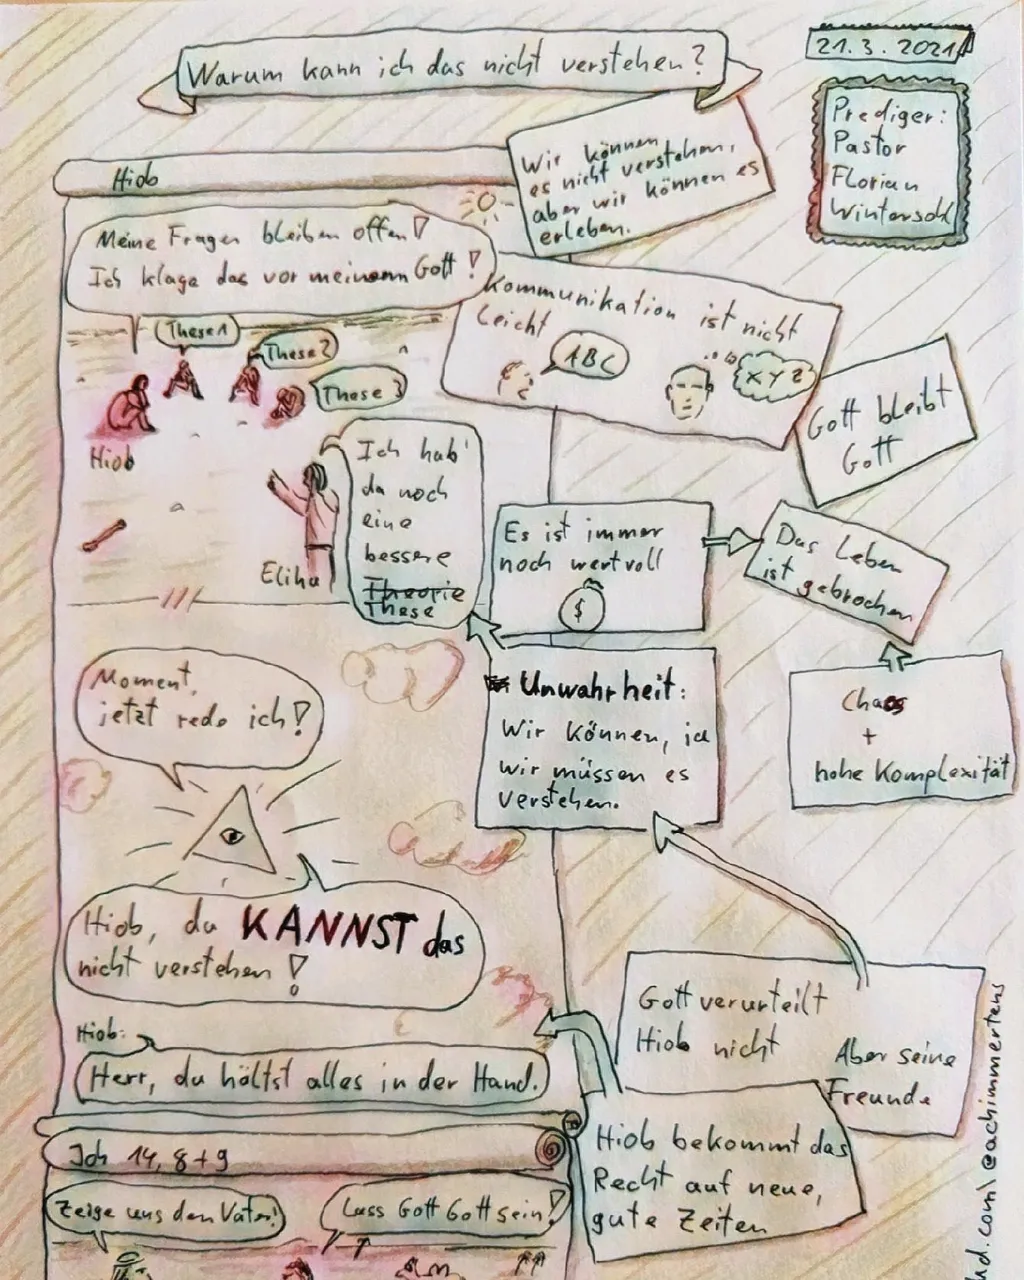 Warum kann ich das nicht verstehen?
21.3.2021
Prediger:
Pastor
Florian
Wintersohl
Hiob
Wir können
es nicht verstehen,
aber wir können es
erleben.
Meine Fragen bleiben offen!
Ich klage das vor meinem Gott!
Kommunikation ist nicht
Leicht
ABC
XYZ
These 1
These 2
These 3
Hiob
Gott bleibt
Gott
Ich hab'
da noch
eine
bessere
Theorie
These
Elihu
Es ist immer
noch wertvoll
$
Das Leben
ist gebrochen
Chaos
+
hohe Komplexität
Unwahrheit:
Wir können, ja
wir müssen es
verstehen.
Moment,
jetzt rede ich!
Hiob, du KANNST das
nicht verstehen!
Gott verurteilt
Hiob nicht
Aber seine
Freunde
Hiob:
Herr, du hältst alles in der Hand.
Hiob bekommt das
Recht auf neue,
gute Zeiten
Joh 14, 8+9
Zeige uns den Vater!
Lass Gott Gott sein!
@achimmertens